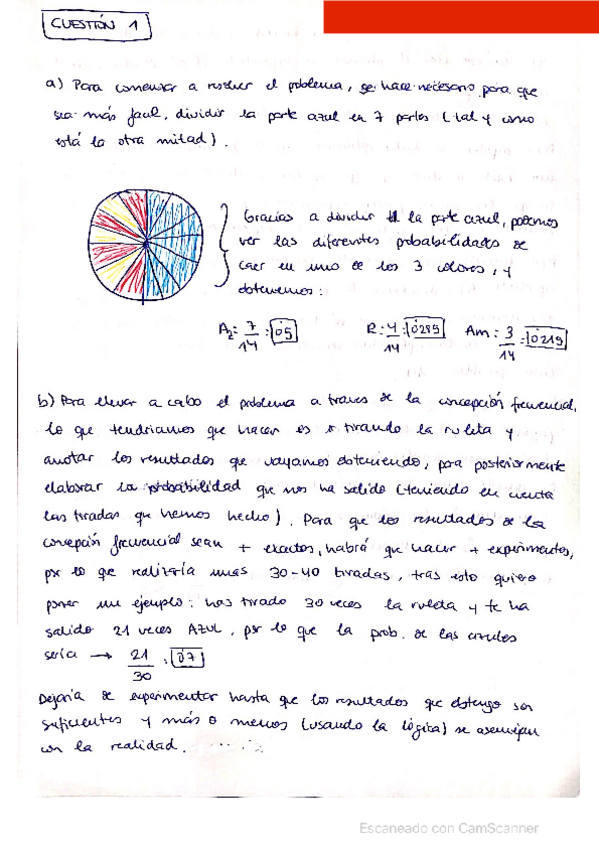 CUESTIÓN 1
a) Para comenzar a resolver el problema, se hace necesario para que
sea más facil, dividir la parte azul en 7 partes (tal y como
está la otra mitad).
Gracias a dividir la parte azul, podemos
ver las diferentes probabilidades de
caer en uno de los 3 colores, y
obtenemos:
Az: 7/14 : 0'5 R: 4/14 : 0'285 Am: 3/14 : 0'215
b) Para llevar a cabo el problema a traves de la concepción frecuencial,
lo que tendriamos que hacer es ir tirando la ruleta y
anotar los resultados que vayamos obteniendo, para posteriormente
elaborar la probabilidad que nos ha salido (teniendo en cuenta
las tiradas que hemos hecho). Para que los resultados de la
concepción frecuencial sean + exactos, habrá que hacer + experimentos,
por lo que realizaría unas 30-40 tiradas, tras esto quiero
poner un ejemplo: has tirado 30 veces la ruleta y te ha
salido 21 veces AZUL, por lo que la prob. de las azules
sería → 21/30 : 0'7
Dejaría de experimentar hasta que los resultados que obtengo son
suficientes y más o menos (usando la lógica) se asemejan
con la realidad.
Escaneado con CamScanner